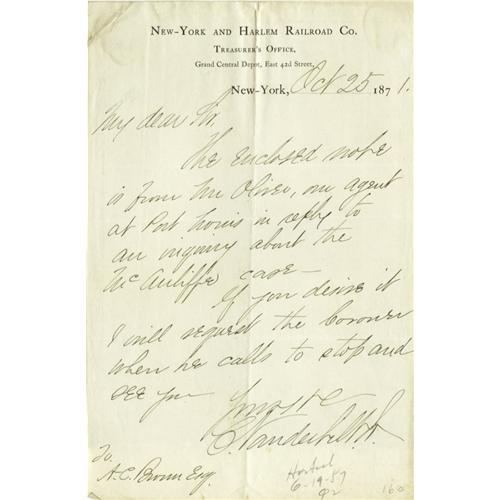 New-York and Harlem Railroad Co.
Treasurer's Office,
Grand Central Depot, East 42d Street,
New-York, Oct 25 1871.
My dear Sir,
The enclosed note
is from Mr Oliver, our agent
at Port Morris in reply to
an inquiry about the
McAuliffe case—
If you desire it
I will request the Coroner
when he calls to stop and
see you
Yours &c
C. Vanderbilt Jr.
To
A.C. Brown Esq
6-19-59
160